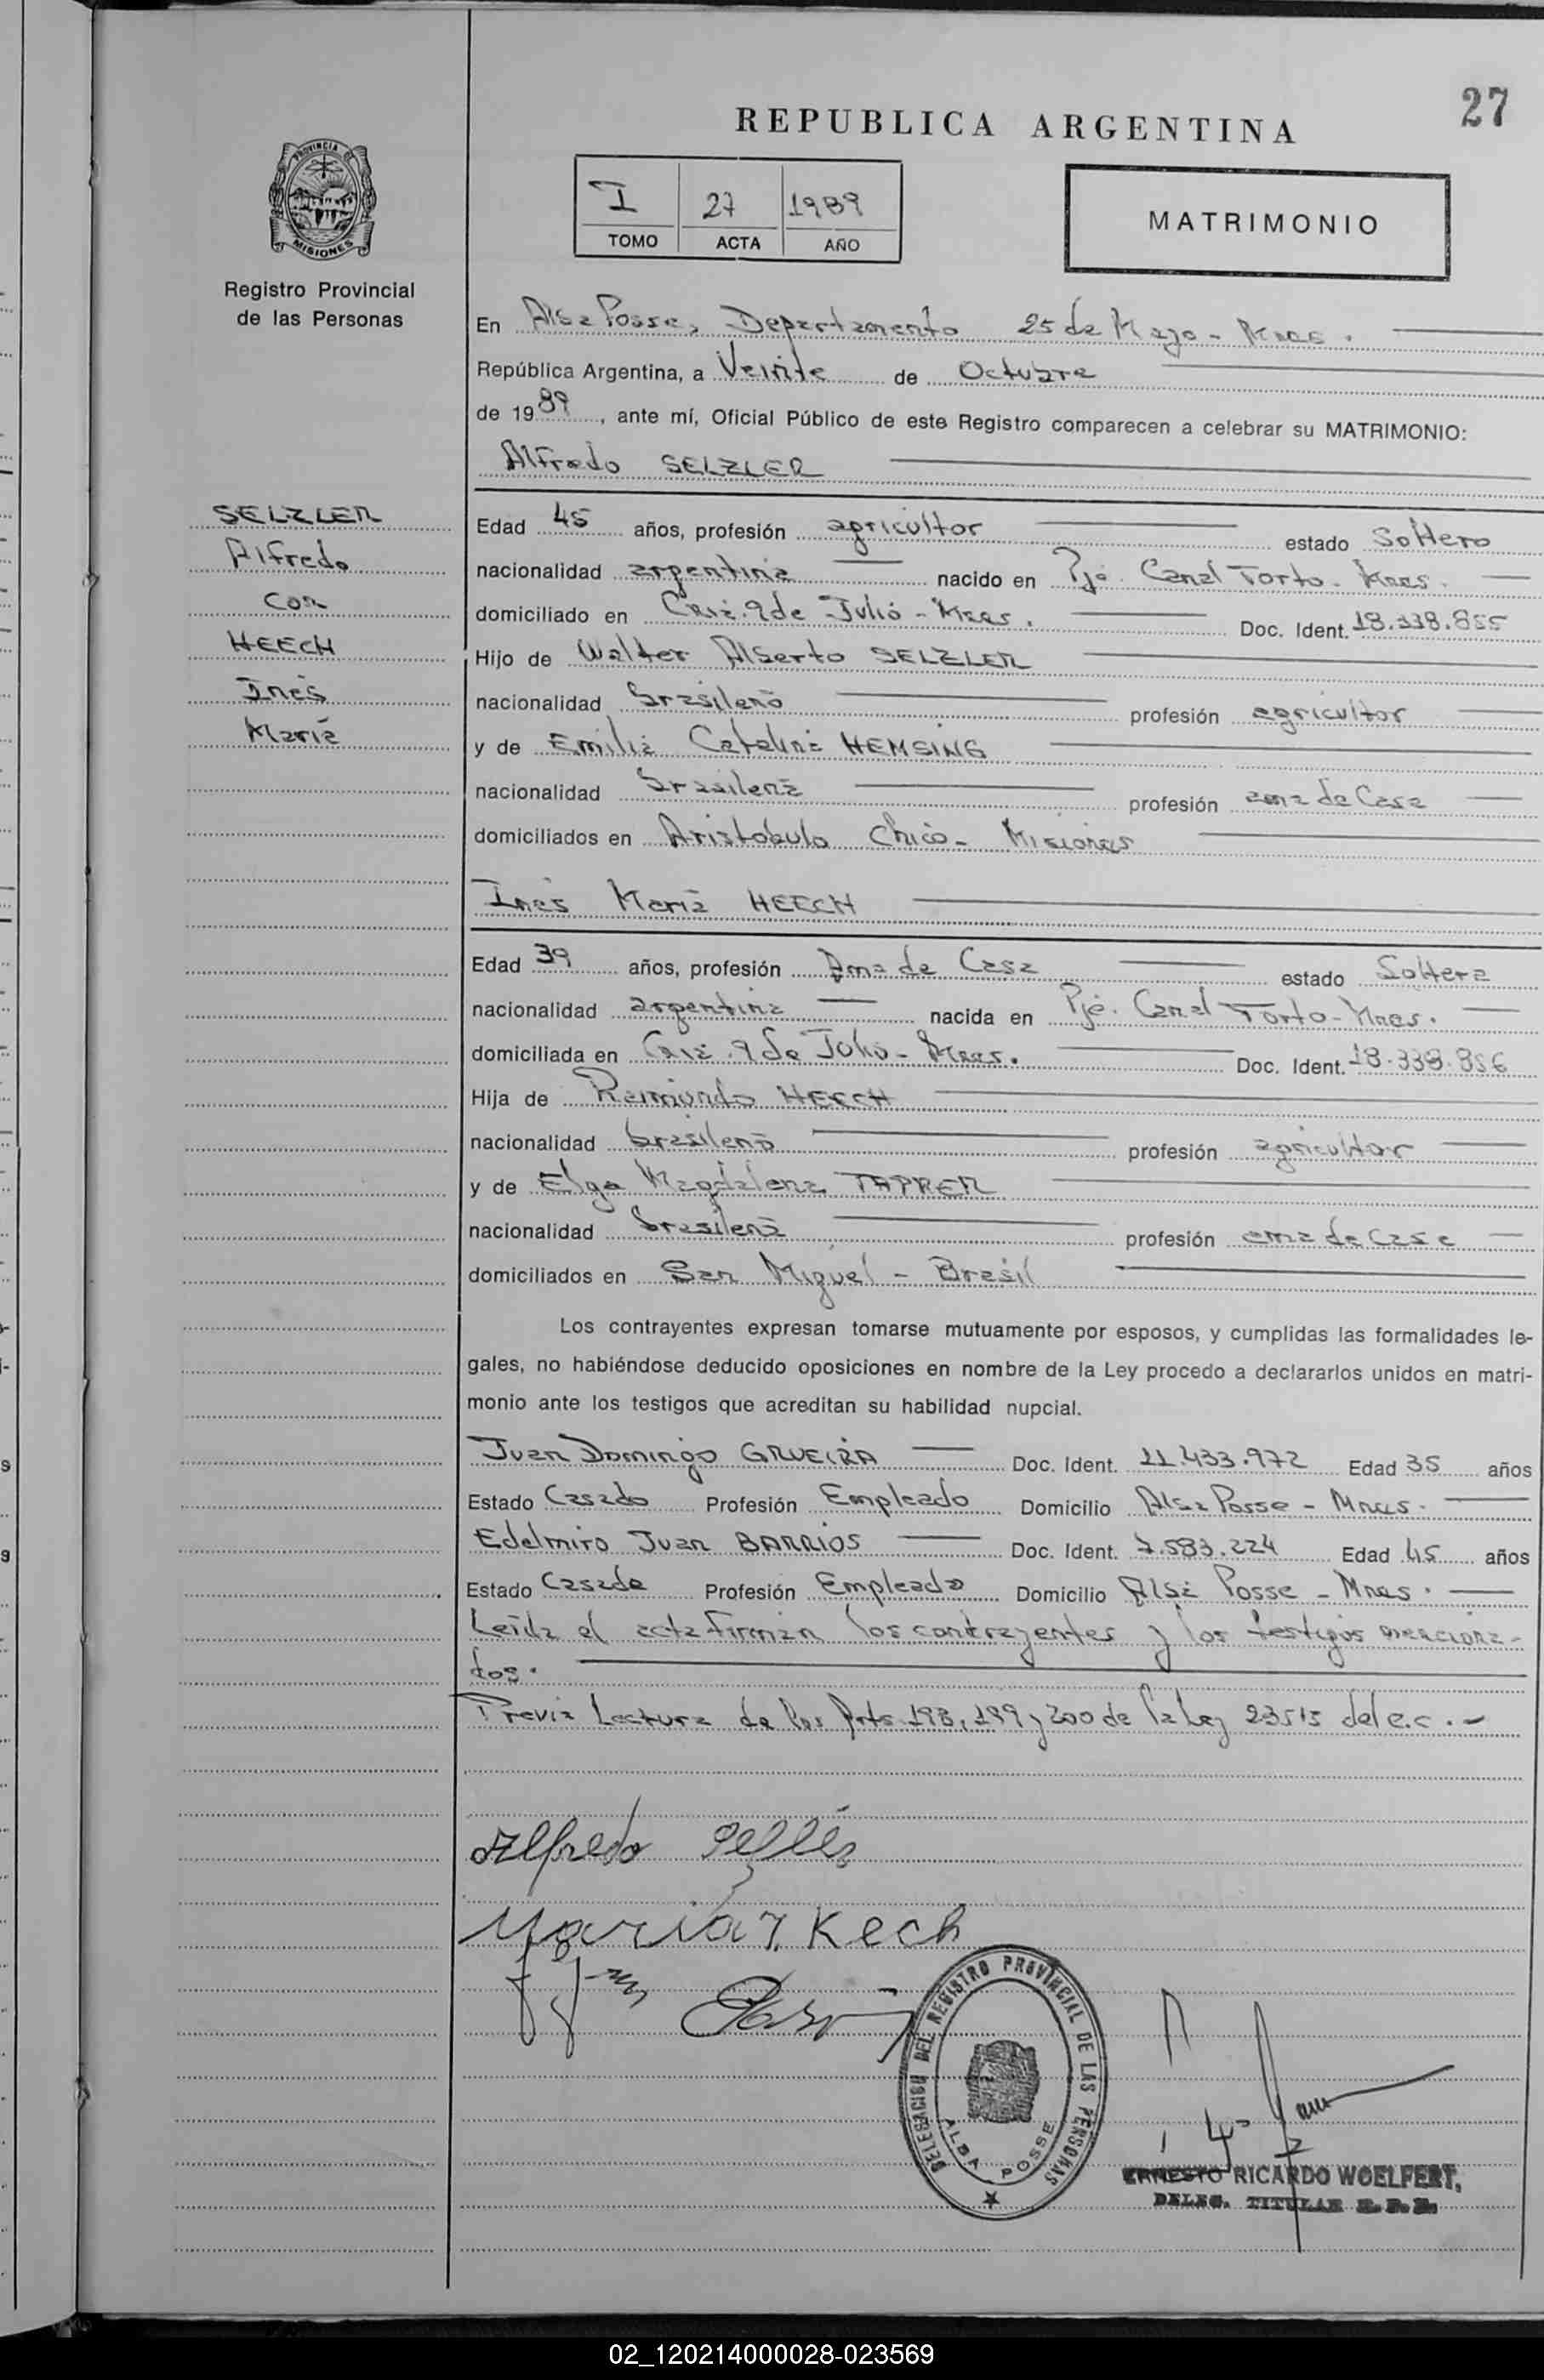 27
REPUBLICA ARGENTINA
PROVINCIA DE
MISIONES
I 27 1989
TOMO ACTA AÑO
MATRIMONIO
Registro Provincial
de las Personas
En Alba Posse, Departamento 25 de Mayo - Mnes.
República Argentina, a Veinte de Octubre
de 1989, ante mí, Oficial Público de este Registro comparecen a celebrar su MATRIMONIO:
Alfredo SELZLER
SELZLER
Alfredo
con
HEECH
Inés
María
Edad 45 años, profesión agricultor estado Soltero
nacionalidad argentina nacido en Pje. Canal Torto - Mnes.
domiciliado en Cnia. 9 de Julio - Mnes. Doc. Ident. 18.338.855
Hijo de Walter Alberto SELZLER
nacionalidad brasileño profesión agricultor
y de Emilia Catalina HEMSING
nacionalidad brasileña profesión ama de Casa
domiciliados en Aristobulo Chico - Misiones
Inés María HEECH
Edad 39 años, profesión Ama de Casa estado Soltera
nacionalidad argentina nacida en Pje. Canal Torto - Mnes.
domiciliada en Cnia. 9 de Julio - Mnes. Doc. Ident. 18.338.856
Hija de Raimundo HEECH
nacionalidad brasileño profesión agricultor
y de Elga Magdalena TAPPER
nacionalidad brasileña profesión ama de Casa
domiciliados en San Miguel - Brasil
Los contrayentes expresan tomarse mutuamente por esposos, y cumplidas las formalidades le-
gales, no habiéndose deducido oposiciones en nombre de la Ley procedo a declararlos unidos en matri-
monio ante los testigos que acreditan su habilidad nupcial.
Juan Domingo GRUEIRA Doc. Ident. 11.433.972 Edad 35 años
Estado Casado Profesión Empleado Domicilio Alba Posse - Mnes.
Edelmiro Juan BARRIOS Doc. Ident. 7.583.224 Edad 45 años
Estado Casado Profesión Empleado Domicilio Alba Posse - Mnes.
Leída el acta firman los contrayentes y los testigos menciona-
dos.
Previa Lectura de los Arts. 198, 199 y 200 de la Ley 23515 del C.C. .-
Alfredo Selzler
Maria I. Kech
DELEGACION DEL REGISTRO PROVINCIAL DE LAS PERSONAS
ALBA POSSE
ERNESTO RICARDO WOELFERT,
DELEG. TITULAR R. P. P.
02_120214000028-023569